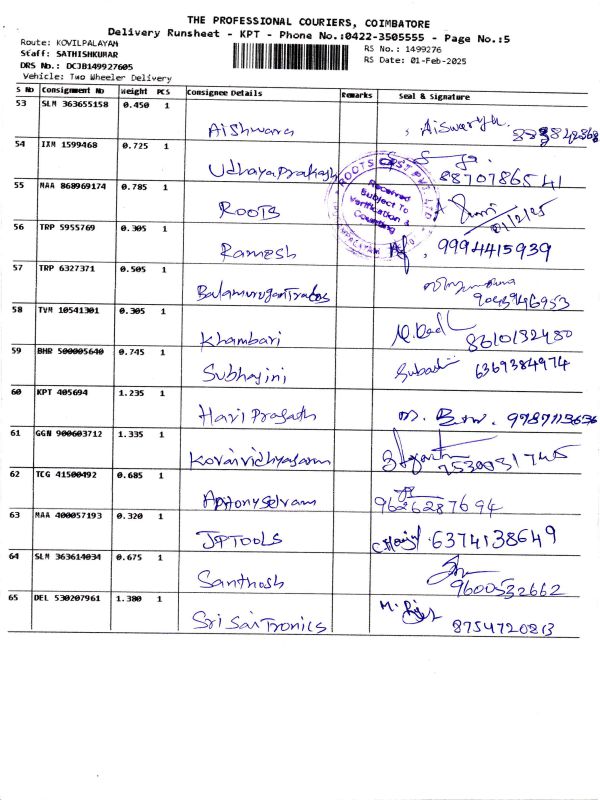 THE PROFESSIONAL COURIERS, COIMBATORE
Delivery Runsheet - KPT - Phone No.:0422-3505555 - Page No.:5
Route: KOVILPALAYAM
RS No.: 1499276
Staff: SATHISHKUMAR
RS Date: 01-Feb-2025
DRS No.: DCJB149927605
Vehicle: Two Wheeler Delivery
S No Consignment No Weight PCS Consignee Details Remarks Seal & Signature
53 SLM 363655158 0.450 1
Aishwara Aiswarya
54 IXM 1599468 0.725 1
Udhaya Prakash 8870786541
55 MAA 868969174 0.785 1
ROOTS 01/2/25
ROOTS PVT LTD
Received
Subject To
Verification &
Counting
56 TRP 5955769 0.305 1
Ramesh 9994415939
57 TRP 6327371 0.505 1
Balamurugan
58 TVM 10541301 0.305 1
Khambari 8610132480
59 BHR 500005640 0.745 1
Subhajini 6369384974
60 KPT 405694 1.235 1
Hari Prasath
61 GGN 900603712 1.335 1
Kovaividhyasaram
62 TCG 41500492 0.685 1
Antonyselvam 9626287694
63 MAA 400057193 0.320 1
JPTOOLS 6374138649
64 SLM 363614034 0.675 1
Santhosh 9600532662
65 DEL 530207961 1.380 1
Sri Sai Tronics 8754720813